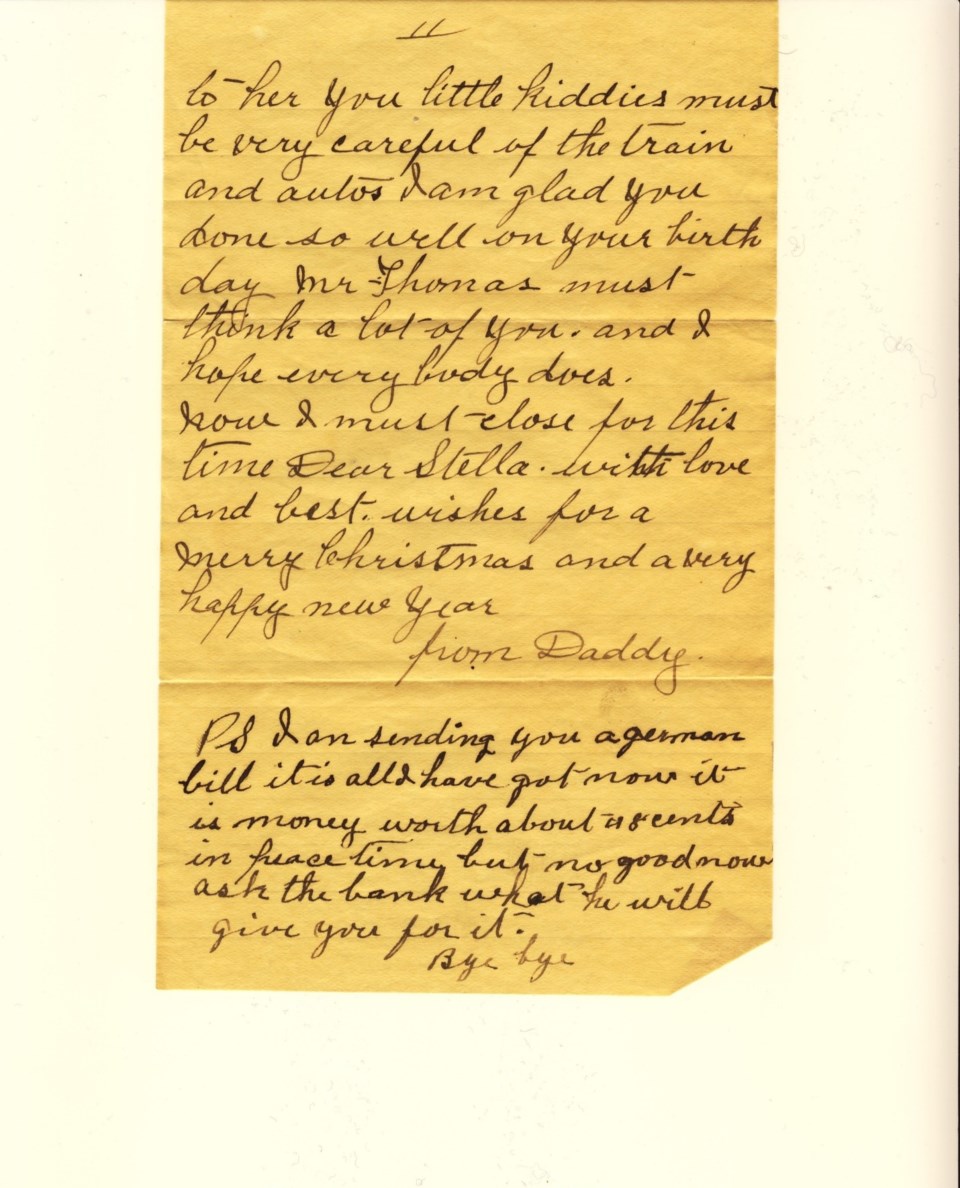 11
to her you little kiddies must
be very careful of the train
and autos I am glad you
done so well on your birth
day Mr Thomas must
think a lot of you. and I
hope every body does.
now I must close for this
time Dear Stella. with love
and best. wishes for a
merry Christmas and a very
happy new year
from Daddy.
PS I an sending you a german
bill it is all I have got now it
is money worth about 48 cents
in peace time but no good now
ask the bank what he will
give you for it.
Bye bye